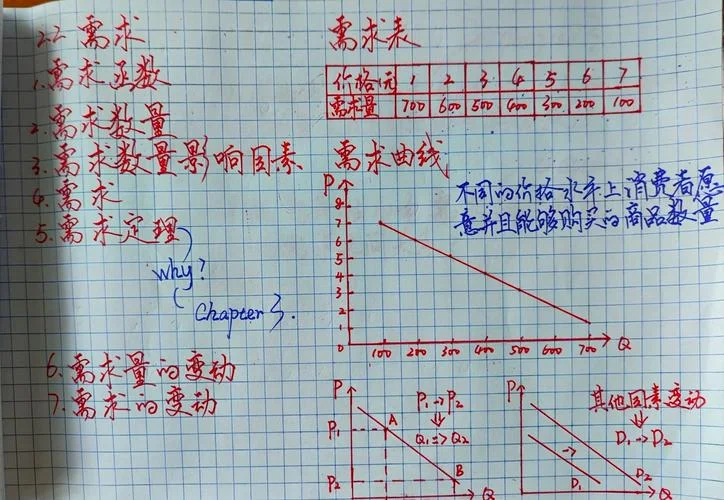 2.2 需求
1. 需求函数
2. 需求数量
3. 需求数量影响因素
4. 需求
5. 需求定理
why?
Chapter 3.
6. 需求量的变动
7. 需求的变动
需求表
价格(元) 1 2 3 4 5 6 7
需求量 700 600 500 400 300 200 100
需求曲线
不同的价格水平上消费者愿
意并且能够购买的商品数量
P
8
7
6
5
4
3
2
1
0 100 200 300 400 500 600 700 Q
P
P₁ A
P₂ B
Q
P₁→P₂
Q₁=>Q₂
P
其他因素变动
D₁→D₂
→
D₁ D₂
Q